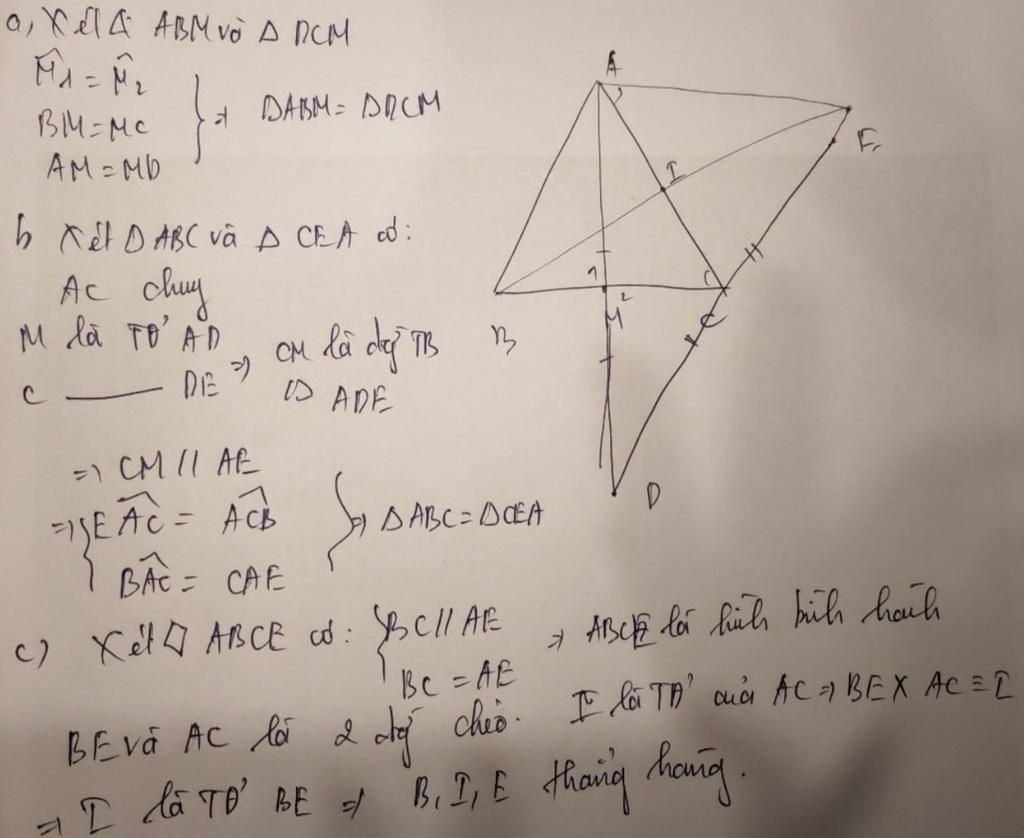 a, Xét Δ ABM và Δ DCM
M̂1 = M̂2
BM = MC
AM = MD
} ⇒ ΔABM = ΔDCM
b Xét Δ ABC và Δ CEA có:
AC chug
M là TĐ' AD
C —— DE ⇒ CM là đg TB
Δ ADE
⇒ CM // AE
⇒ { EÂC = ACB
BÂC = CAE
} ⇒ Δ ABC = Δ CEA
c) Xét ◊ ABCE có: { BC // AE
BC = AE
⇒ ABCE là hình bình hành
BE và AC là 2 đg chéo. I là TĐ' của AC ⇒ BE X AC ≡ I
⇒ I là TĐ' BE ⇒ B, I, E thẳng hàng.
A
E
I
1
2
M
B
C
D